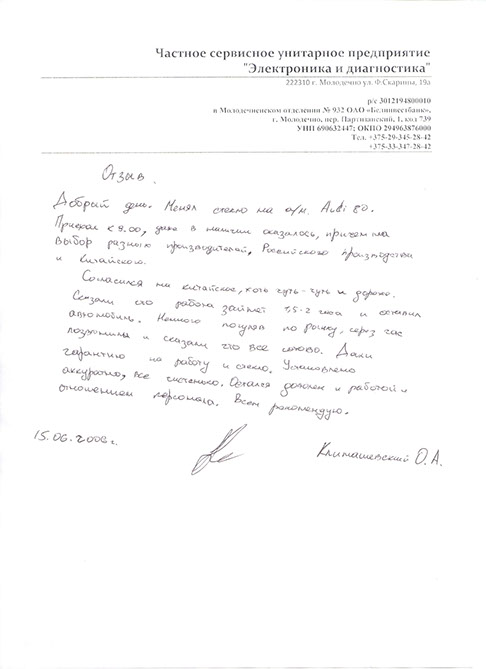 Частное сервисное унитарное предприятие
"Электроника и диагностика"
222310 г. Молодечно ул. Ф.Скарины, 19а
р/с 3012194800010
в Молодечненском отделении № 932 ОАО «Белинвестбанк»,
г. Молодечно, пер. Партизанский, 1, код 739
УНП 690632447; ОКПО 294963876000
Тел. +375-29-345-28-42
+375-33-347-28-42
Отзыв.
Добрый день. Менял стекло на а/м. Audi 80.
Приехал к 9.00, даже в наличии оказалось, причем на
выбор разных производителей, Российского производства
и Китайского.
Согласился на китайское, хоть чуть-чуть и дороже.
Сказали что работа займет 1,5-2 часа и оставил
автомобиль. Немного погулял по рынку, через час
позвонили и сказали что все готово. Дали
гарантию на работу и стекло. Установлено
аккуратно, все чистенько. Остался доволен и работой и
отношением персонала. Всем рекомендую.
15.06.2008 г.
Климашевский О.А.